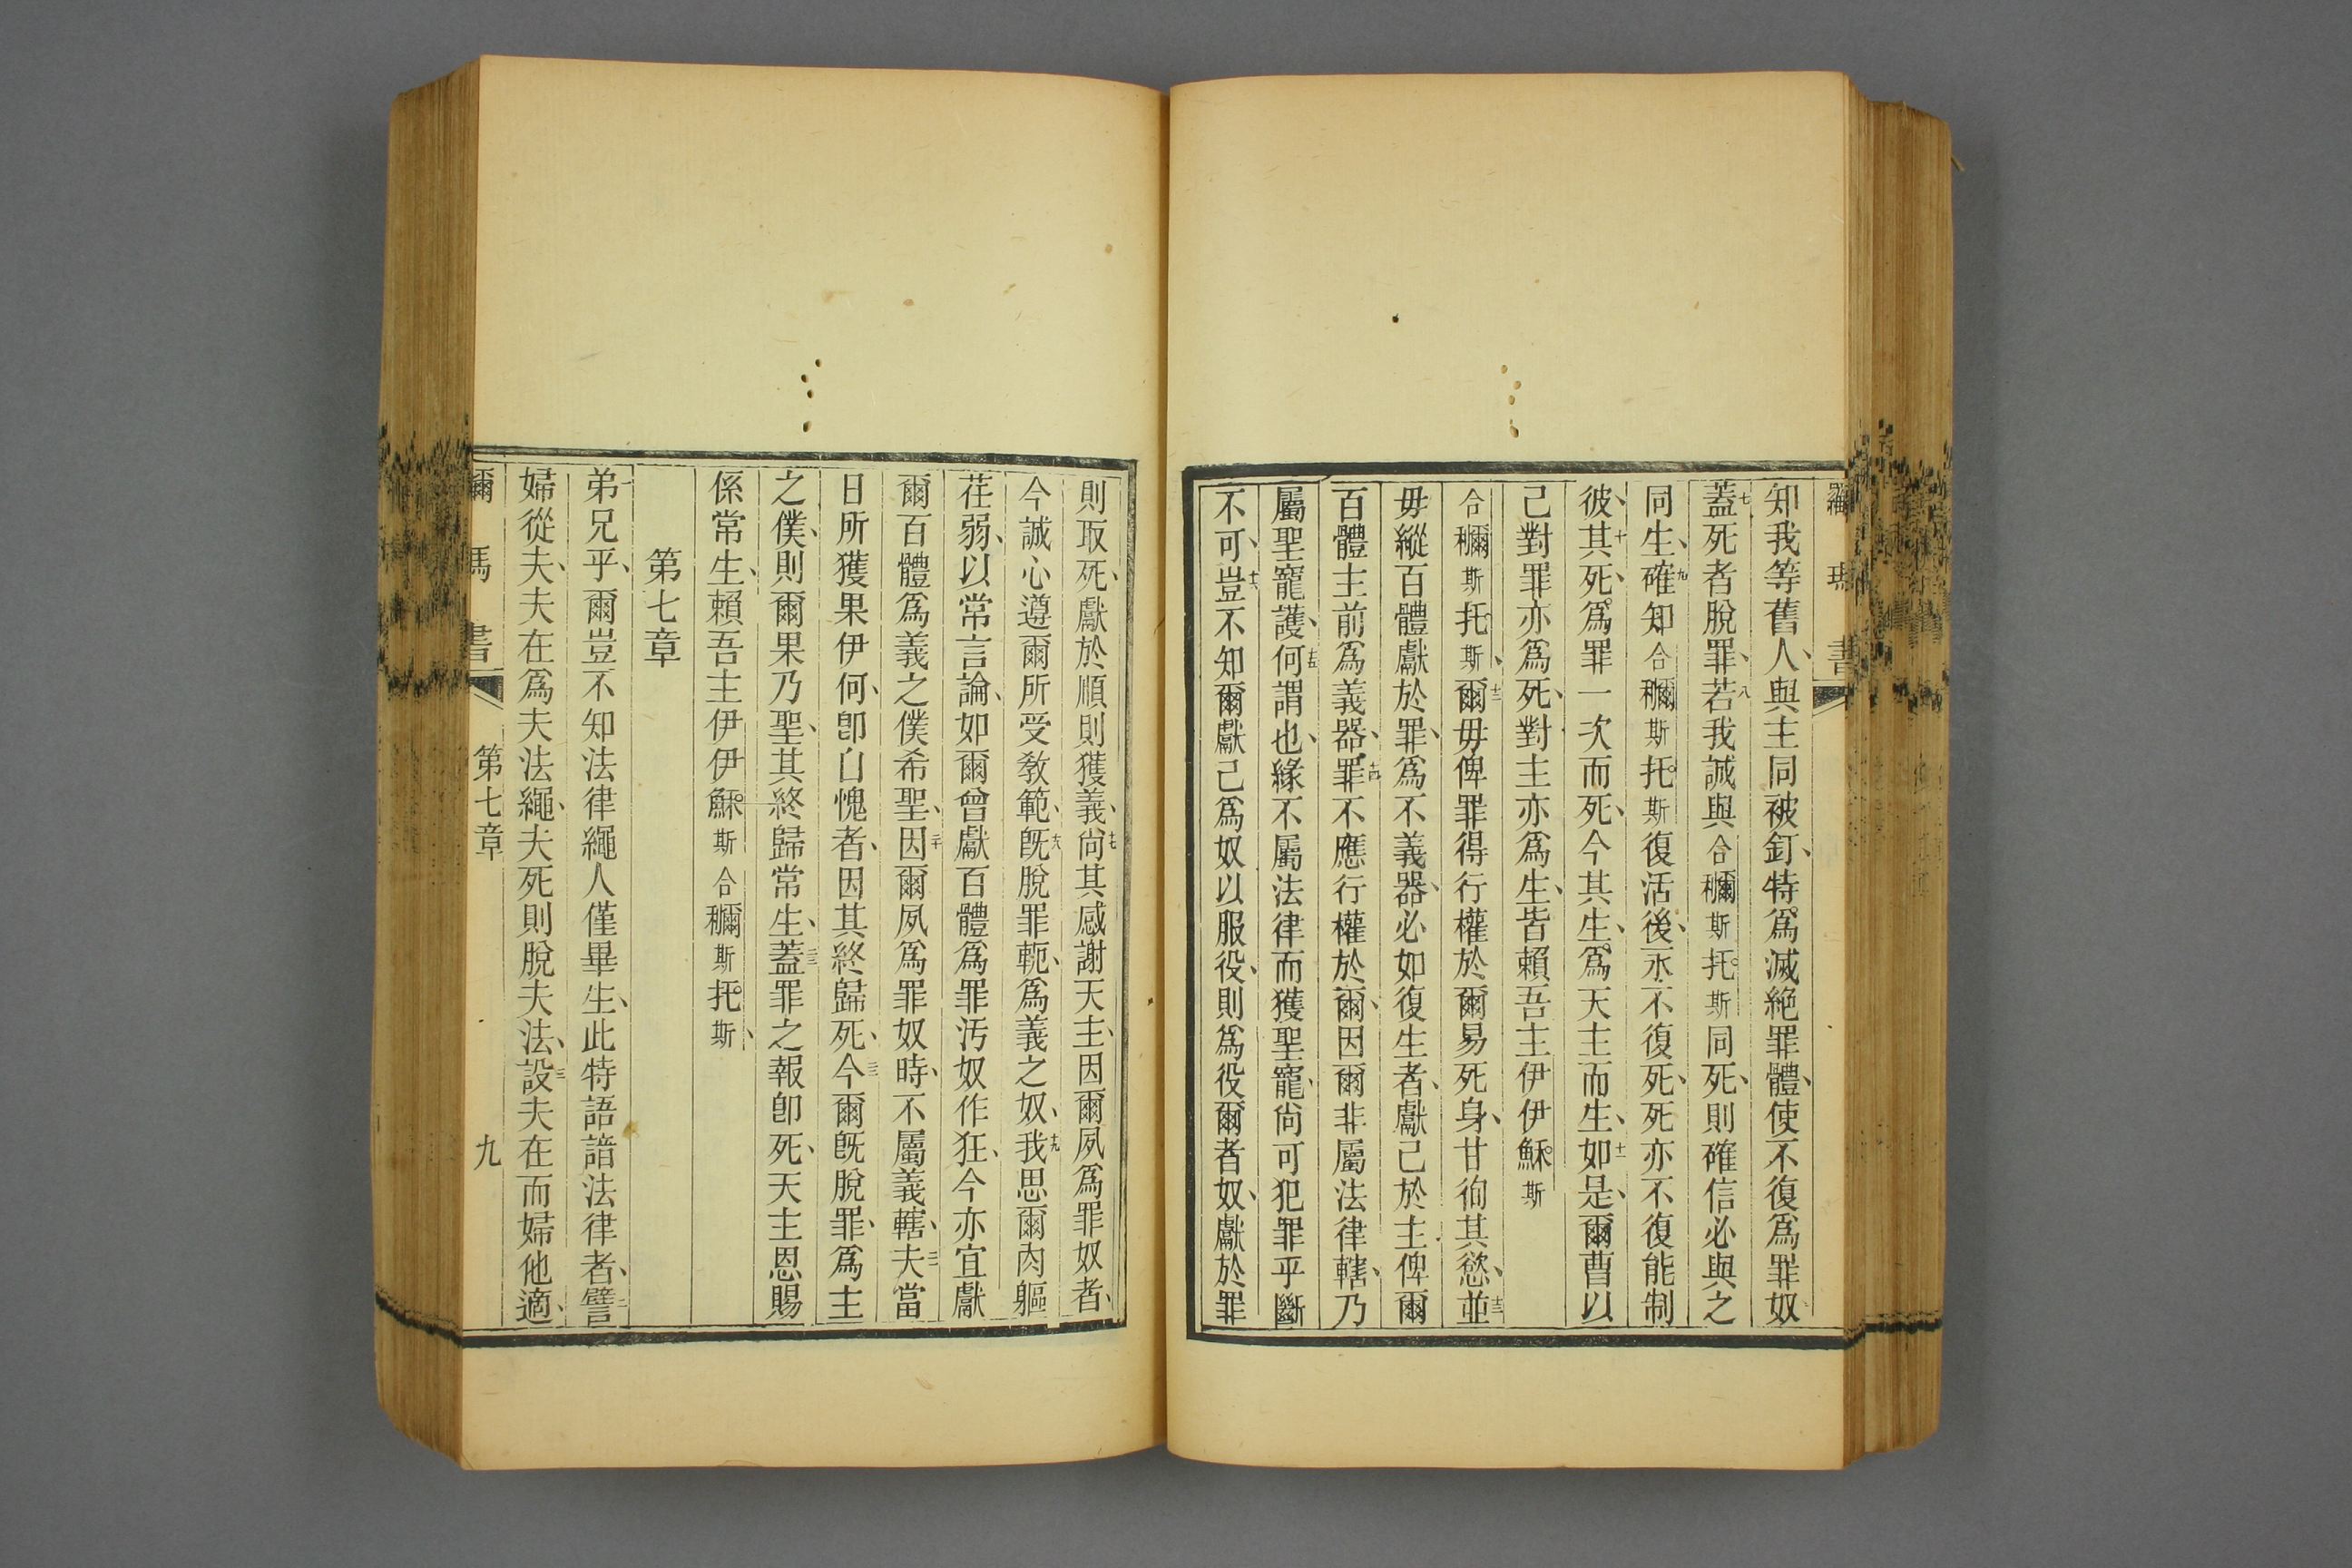 書
知我等舊人、與主同被釘、特爲滅絕罪體、使不復爲罪奴、
七蓋死者脫罪、八若我誠與合穪斯托斯同死、則確信必與之
同生、九確知合穪斯托斯復活後、永不復死、死亦不復能制
彼、十其死、爲罪一次而死、今其生、爲天主而生、十一如是、爾曹以
己對罪亦爲死、對主亦爲生、皆賴吾主伊伊穌斯
合穪斯托斯、十二爾毋俾罪得行權於爾易死身、甘徇其慾、十三並
毋縱百體獻於罪、爲不義器、必如復生者、獻己於主俾爾
百體主前爲義器、十四罪不應行權於爾、因爾非屬法律轄、乃
屬聖寵護、十五何謂也、緣不屬法律而獲聖寵、尙可犯罪乎斷
不可、十六豈不知爾獻己爲奴以服役、則爲役爾者奴、獻於罪
則取死、獻於順則獲義、十七尙其感謝天主、因爾夙爲罪奴者、
今誠心遵爾所受敎範、十八旣脫罪軛、爲義之奴、十九我思爾肉軀
荏弱、以常言論、如爾曾獻百體爲罪汚奴作狂、今亦宜獻
爾百體爲義之僕希聖、二十因爾夙爲罪奴時、不屬義轄、二一夫當
日所獲果伊何、卽自愧者、因其終歸死、二二今爾旣脫罪、爲主
之僕、則爾果乃聖、其終歸常生、二三蓋罪之報卽死、天主恩賜
係常生、賴吾主伊伊穌斯合穪斯托斯、
第七章
一弟兄乎、爾豈不知法律繩人僅畢生、此特語諳法律者、二譬
婦從夫、夫在爲夫法繩、夫死則脫夫法、三設夫在而婦他適、
爾馬書 第七章 九